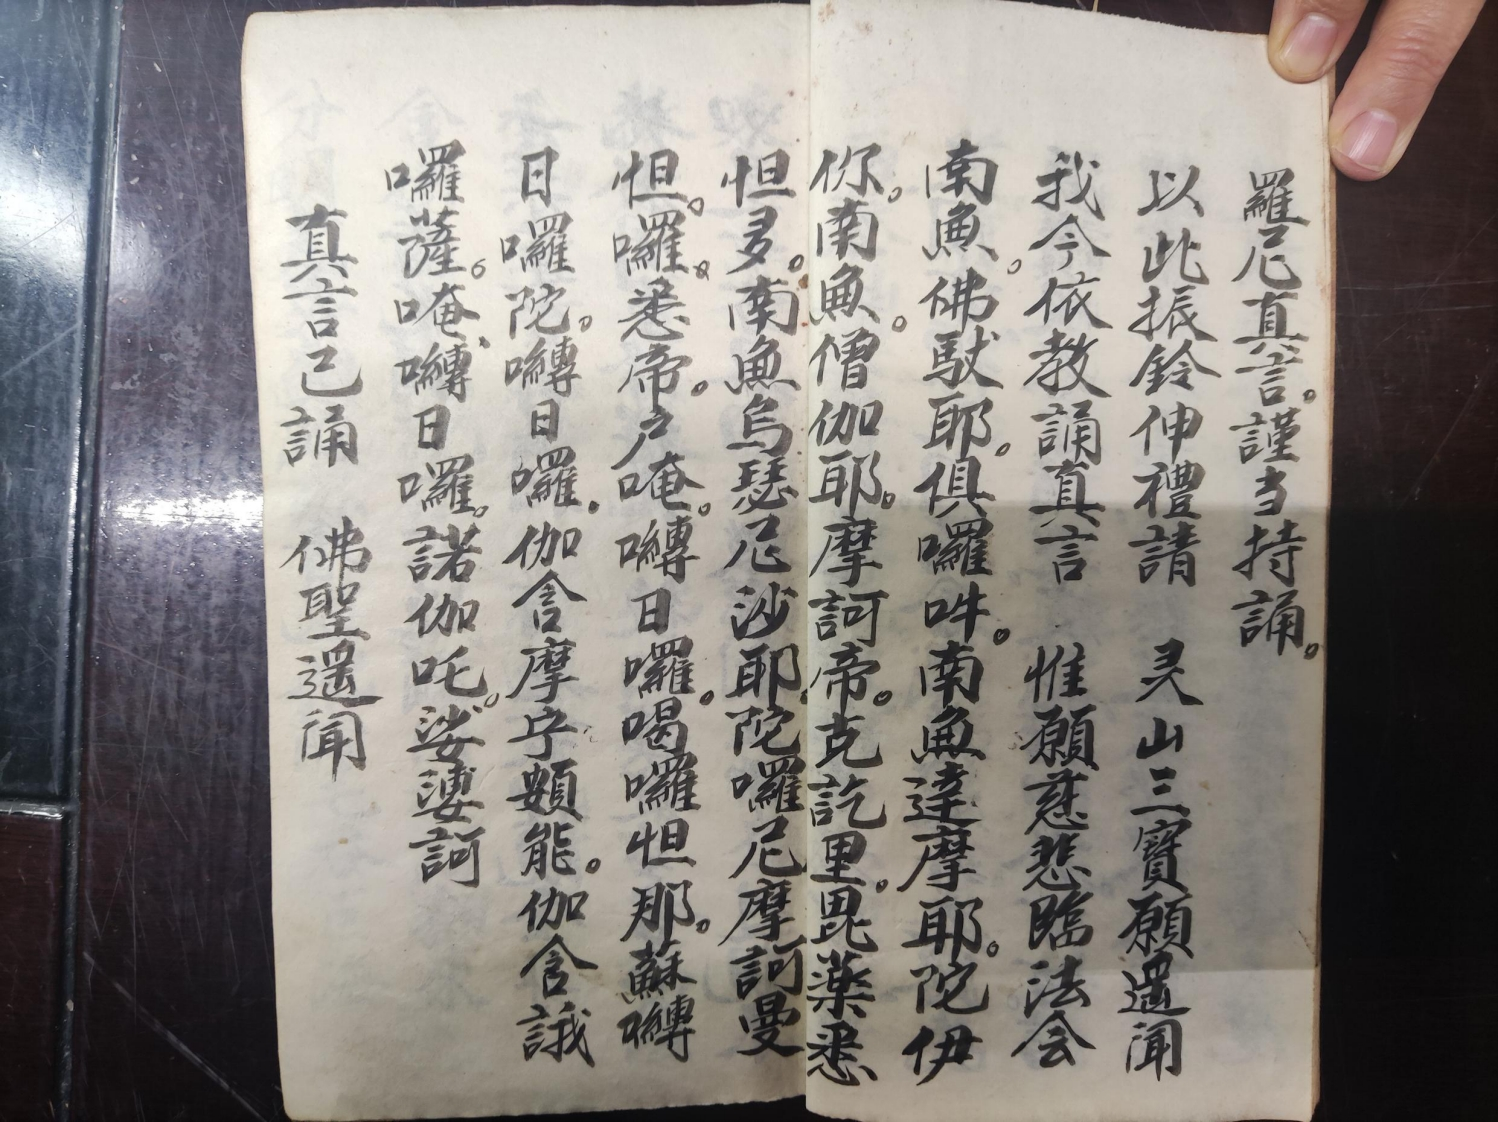 羅尼真言。謹当持誦。
以此振鈴伸禮請　灵山三寶願遥聞
我今依教誦真言　惟願慈悲臨法会
南魚。佛馱耶。俱囉吽。南魚達摩耶。陀伊
你。南魚。僧伽耶。摩訶帝。克訖里。毘藥悉
怛多。南魚烏瑟尼沙耶。陀囉尼摩訶曼
怛。囉。悉帝。户唵。嚩日囉。喝囉怛那。蘇嚩
日囉陀。嚩日囉。伽含摩乎頞能。伽含誐
囉薩。唵、嚩日囉。諾伽吒。娑婆訶
真言已誦　佛聖遥聞